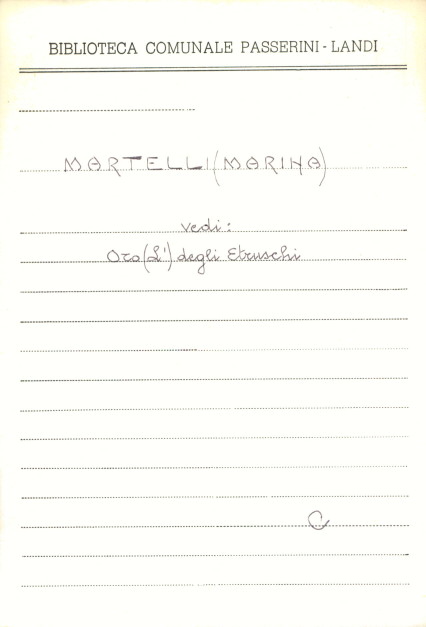 BIBLIOTECA COMUNALE PASSERINI-LANDI
MARTELLI (MARINA)
vedi:
Oro (L') degli Etruschi
C